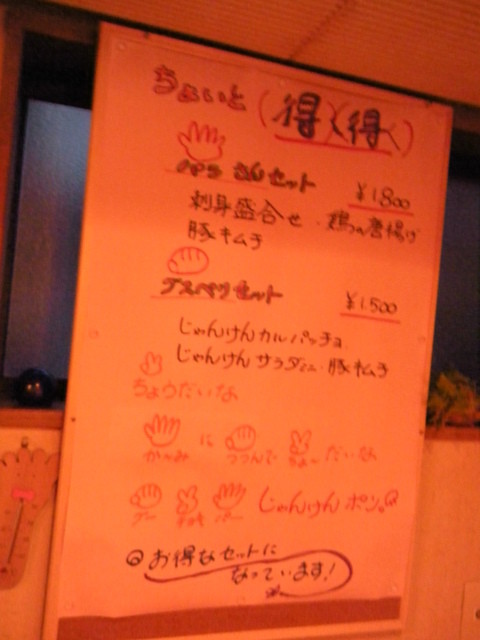 ちょいと(得く得く)
セット ¥1800
刺身盛合せ・鶏の唐揚げ
豚キムチ
セット ¥1500
じゃんけんカルパッチョ
じゃんけんサラダミニ・豚キムチ
ちょうだいな
に つつんで ちょーだいな
グー チョキ パー じゃんけんポン。
お得なセットに
なっています!